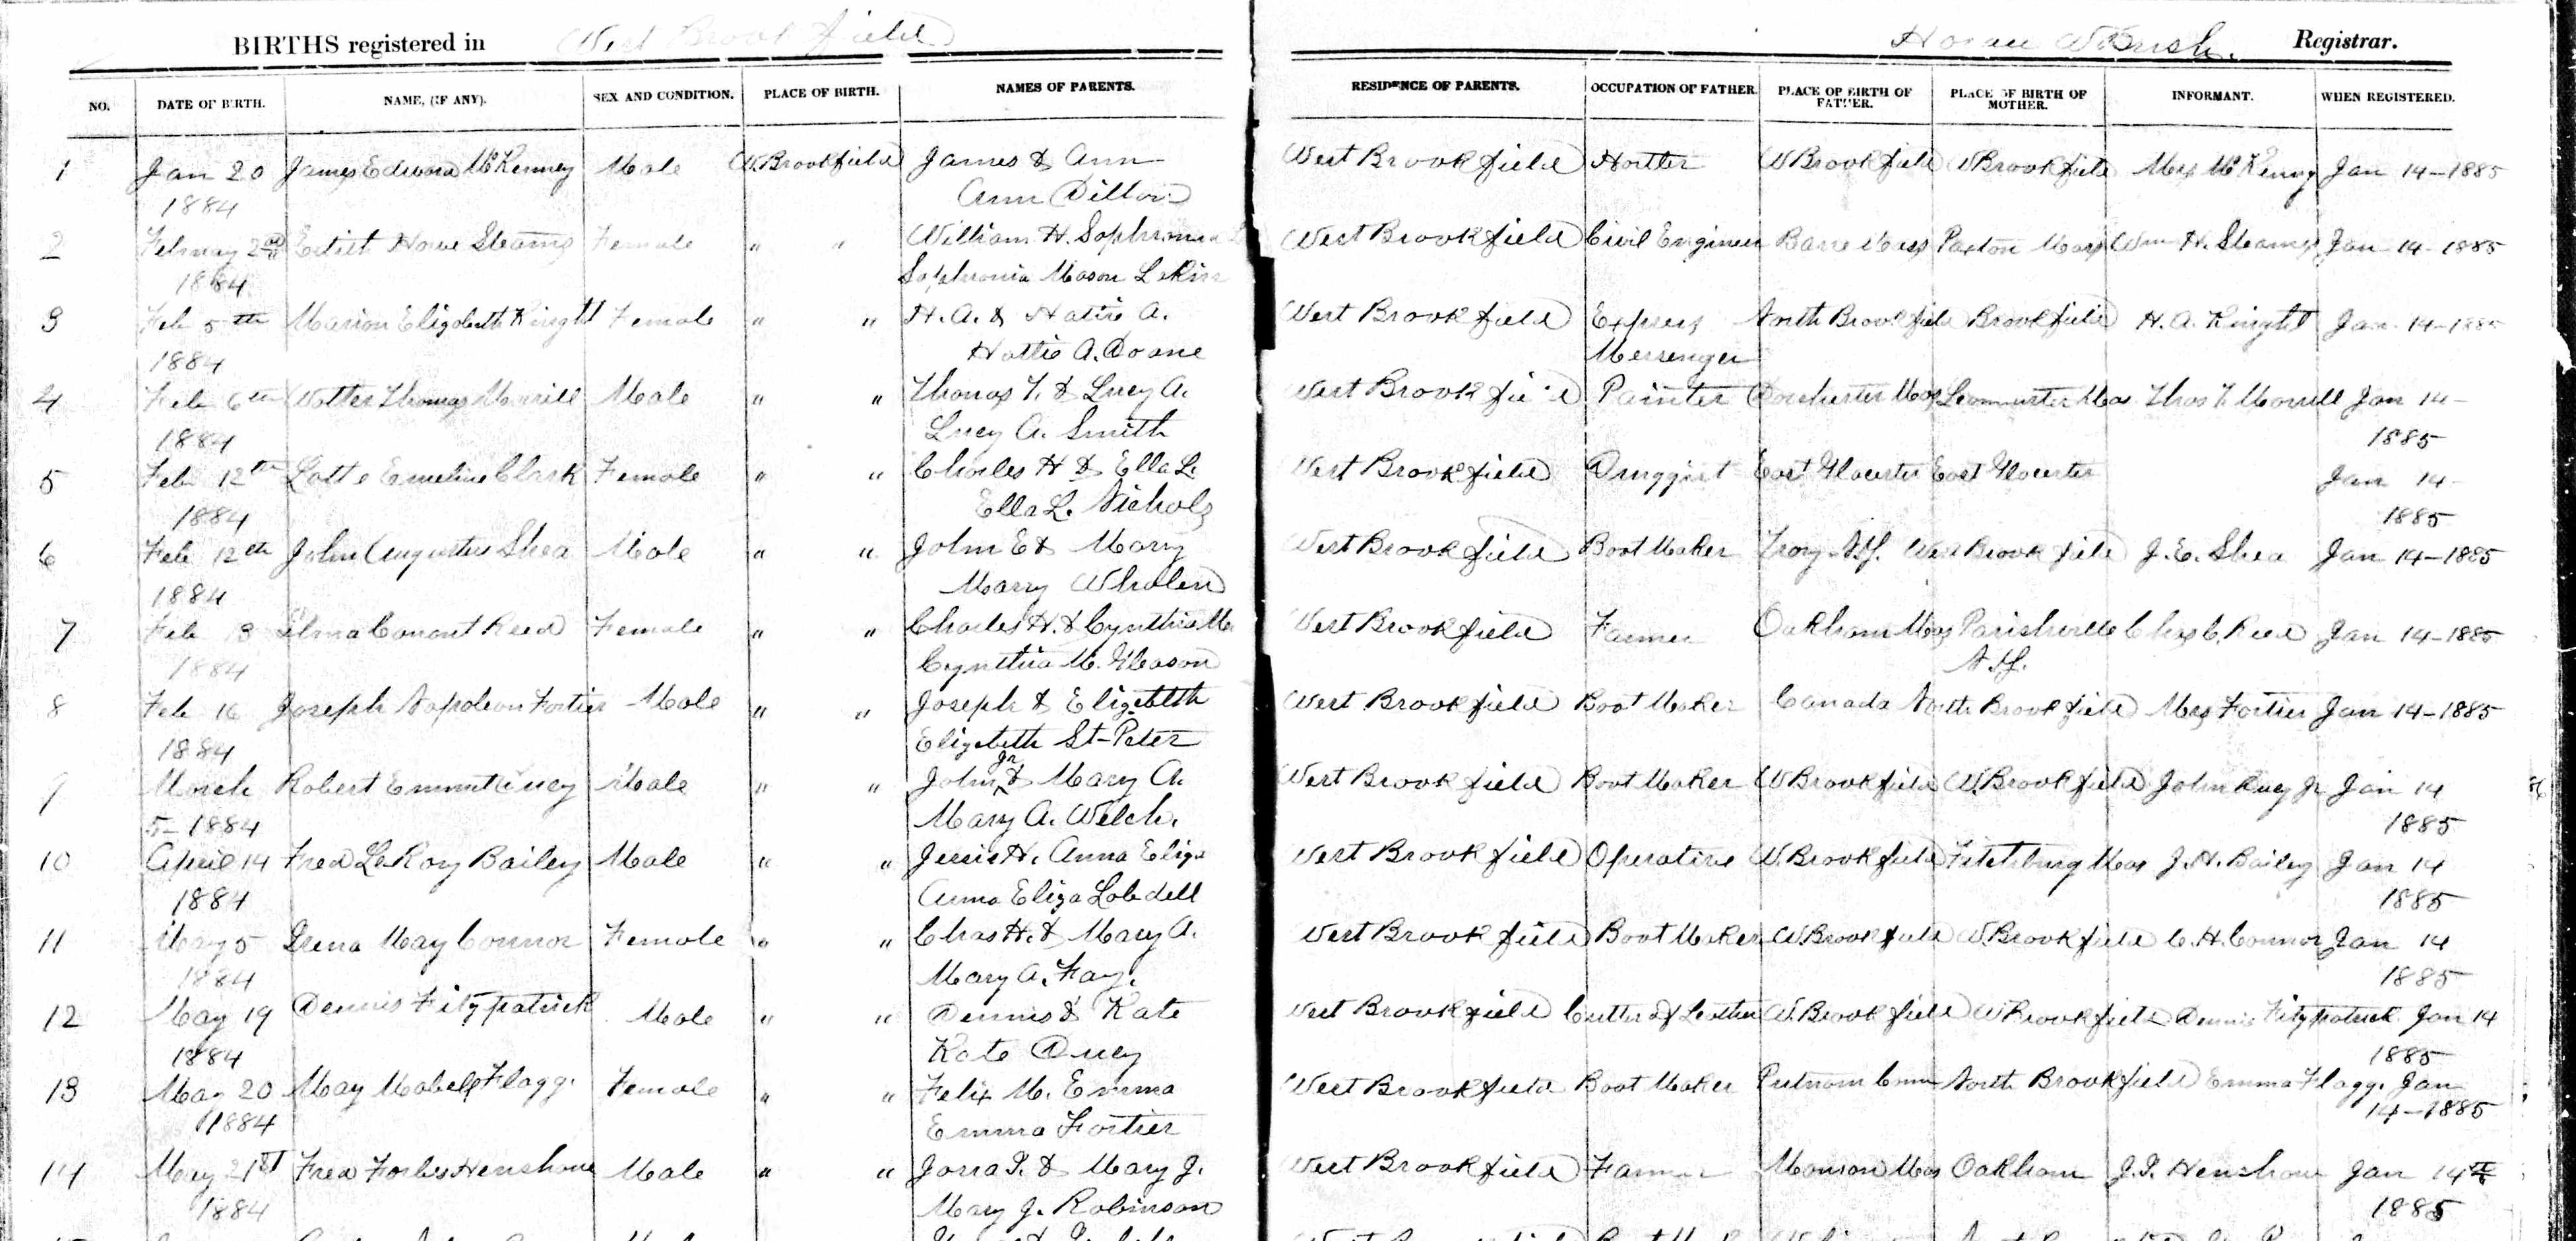 BIRTHS registered in West Brookfield
Registrar.
NO. DATE OF BIRTH. NAME, (IF ANY). SEX AND CONDITION. PLACE OF BIRTH. NAMES OF PARENTS. RESIDENCE OF PARENTS. OCCUPATION OF FATHER. PLACE OF BIRTH OF FATHER. PLACE OF BIRTH OF MOTHER. INFORMANT. WHEN REGISTERED.
1 Jan 20 James Edward McKenney Male W. Brookfield James & Ann West Brookfield Hostler W Brookfield W Brookfield Mrs McKenny Jan 14-1885
1884 Ann Dillon
2 2nd Howe Stearns Female " " William H. Sophronia West Brookfield Civil Engineer Barre Mass Paxton Mass Wm H. Stearns Jan 14-1885
1884 Sophronia Mason
3 Feb 5th Marion Elizabeth Knight Female " " H. A. & Hattie A. West Brookfield Express North Brookfield Brookfield H. A. Knight Jan 14-1885
1884 Hattie A. Doane Messenger
4 Feb 6th Walter Thomas Morrill Male " " Thomas F. & Lucy A. West Brookfield Painter Dorchester Mas Leominster Mas Thos F. Morrill Jan 14-
1884 Lucy A. Smith 1885
5 Feb 12th Emeline Clark Female " " Charles H & Ella L. West Brookfield Druggist East Gloucester East Gloucester Jan 14-
1884 Ella L. Nichols 1885
6 Feb 12th John Augustus Shea Male " " John E & Mary West Brookfield Boot Maker Troy N.Y. West Brookfield J. E. Shea Jan 14-1885
1884 Mary Whalen
7 Feb 13 Conant Reed Female " " Charles H. & Cynthia M. West Brookfield Farmer Oakham Mas Parishville Chas C. Reed Jan 14-1885
1884 Cynthia M. Gleason N.Y.
8 Feb 16 Joseph Napoleon Fortier Male " " Joseph & Elizabeth West Brookfield Boot Maker Canada North Brookfield Mrs Fortier Jan 14-1885
1884 Elizabeth St-Peter
9 March Robert Emmet Male " " John Jr & Mary A. West Brookfield Boot Maker W Brookfield W. Brookfield John Jr Jan 14
5-1884 Mary A. Welch. 1885
10 April 14 Fred LeRoy Bailey Male " " Jessie H. Anna Eliza West Brookfield Operative W. Brookfield Fitchburg Mas J. H. Bailey Jan 14
1884 Anna Eliza Lobdell 1885
11 May 5 Irena May Connor Female " " Chas H. & Mary A. West Brookfield Boot Maker W. Brookfield W. Brookfield C. H. Connor Jan 14
1884 Mary A. Fay. 1885
12 May 19 Dennis Fitzpatrick Male " " Dennis & Kate West Brookfield Cutter of Leather W. Brookfield W Brookfield Dennis Fitzpatrick Jan 14
1884 Kate Ducy 1885
13 May 20 May Mabell Flagg. Female " " Felix M. Emma West Brookfield Boot Maker Putnam Conn North Brookfield Emma Flagg. Jan
1884 Emma Fortier 14-1885
14 May 21st Fred Forbes Henshaw Male " " & Mary J. West Brookfield Farmer Monson Mas Oakham Henshaw Jan 14th
1884 Mary J. Robinson 1885